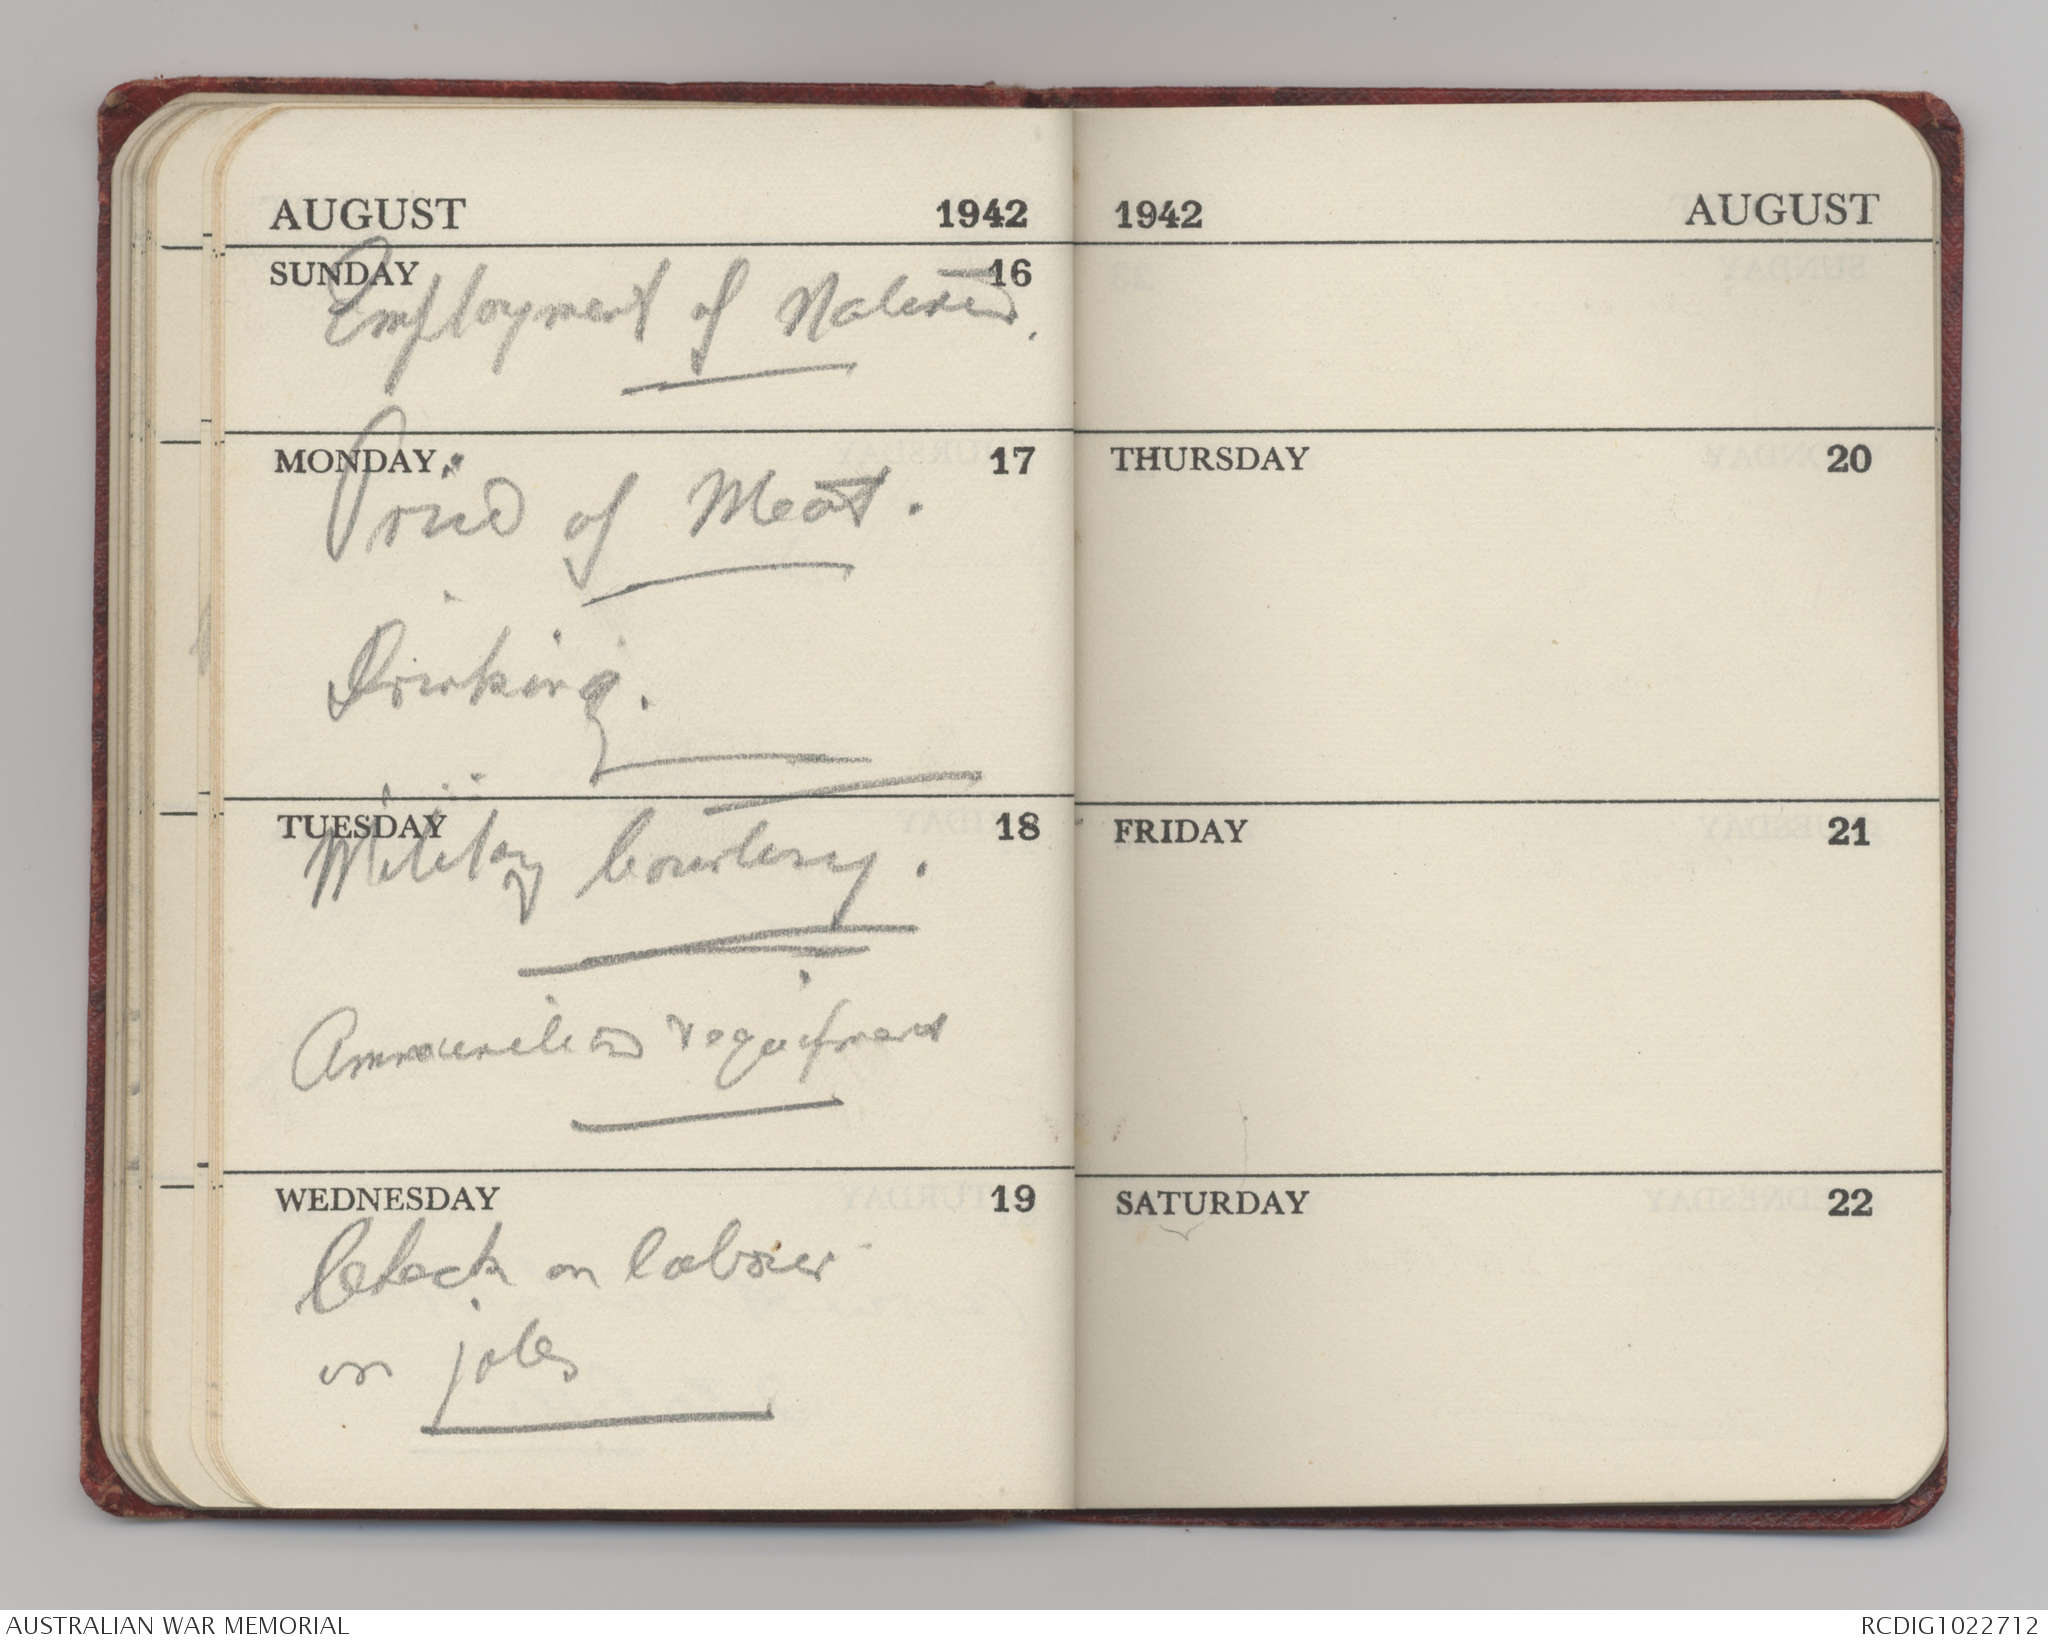 AUGUST 1942
SUNDAY 16
Employment of Natives.
MONDAY 17
Price of Meat.
Drinking.
TUESDAY 18
Military Courtesy.
Ammunition & equipment
WEDNESDAY 19
Check on labour
on jobs
1942 AUGUST
THURSDAY 20
FRIDAY 21
SATURDAY 22
AUSTRALIAN WAR MEMORIAL
RCDIG1022712